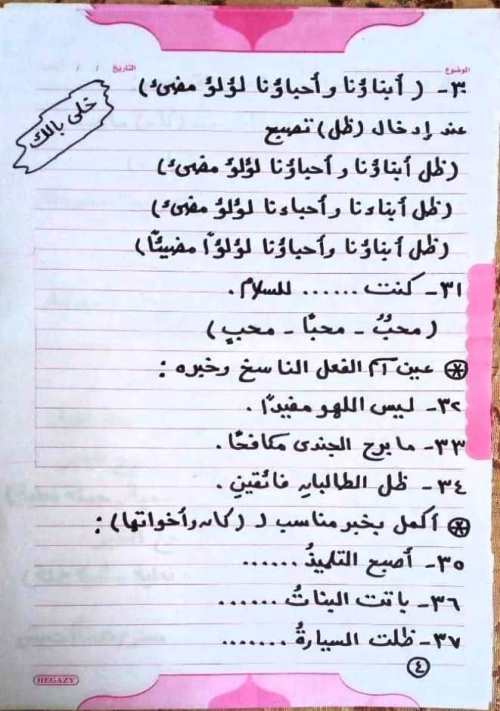 الموضوع
التاريخ / /
خلى بالك
٣٠- ( أبناؤنا وأحباؤنا لؤلؤ مضىء )
عند إدخال (ظل) تصبح
(ظل أبناؤنا وأحباؤنا لؤلؤ مضىء)
(ظل أبناءنا وأحباءنا لؤلؤ مضىء)
(ظل أبناؤنا وأحباؤنا لؤلؤًا مضيئًا)
٣١- كنت ...... للسلام .
( محبٌ - محبًا - محبٍ )
عين اسم الفعل الناسخ وخبره :
٣٢- ليس اللهو مفيدًا .
٣٣- ما برح الجندى مكافحًا .
٣٤- ظل الطالبان فائقينِ .
أكمل بخبر مناسب لـ ( كان وأخواتها ) :
٣٥- أصبح التلميذُ ......
٣٦- باتت البناتُ .......
٣٧- ظلت السيارةُ .......
٤
HEGAZY